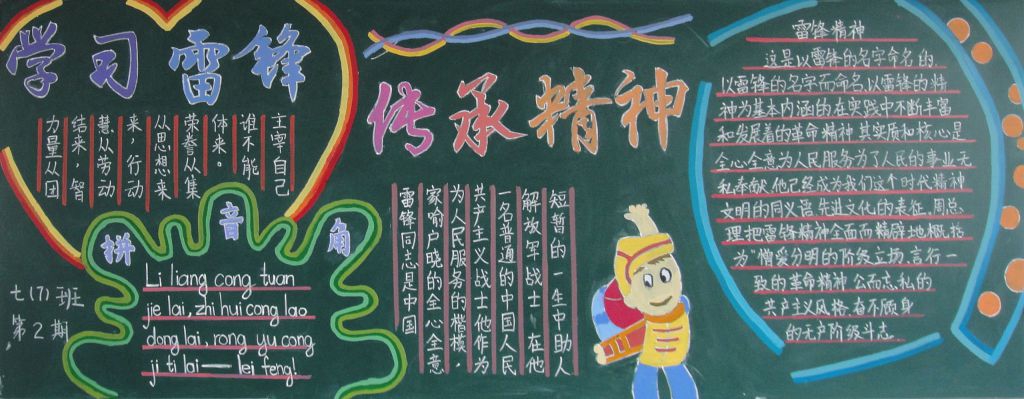 学习雷锋
力量从团
结来，智
慧从劳动
来，行动
从思想来
荣誉从集
体来。
谁不能
主宰自己
拼音角
Li liang cong tuan
jie lai, zhi hui cong lao
dong lai, rong yu cong
ji ti lai——lei feng!
七(7)班
第2期
传承精神
雷锋同志是中国
家喻户晓的全心全意
为人民服务的楷模，
共产主义战士他作为
一名普通的中国人民
解放军战士，在他
短暂的一生中助人
雷锋精神
这是以雷锋的名字命名的
以雷锋的名字而命名,以雷锋的精
神为基本内涵的在实践中不断丰富
和发展着的革命精神其实质和核心是
全心全意为人民服务为了人民的事业无
私奉献,他已经成为我们这个时代精神
文明的同义语先进文化的表征.周总
理把雷锋精神全面而精辟地概括
为"憎爱分明的阶级立场,言行一
致的革命精神公而忘私的
共产主义风格,奋不顾身
的无产阶级斗志